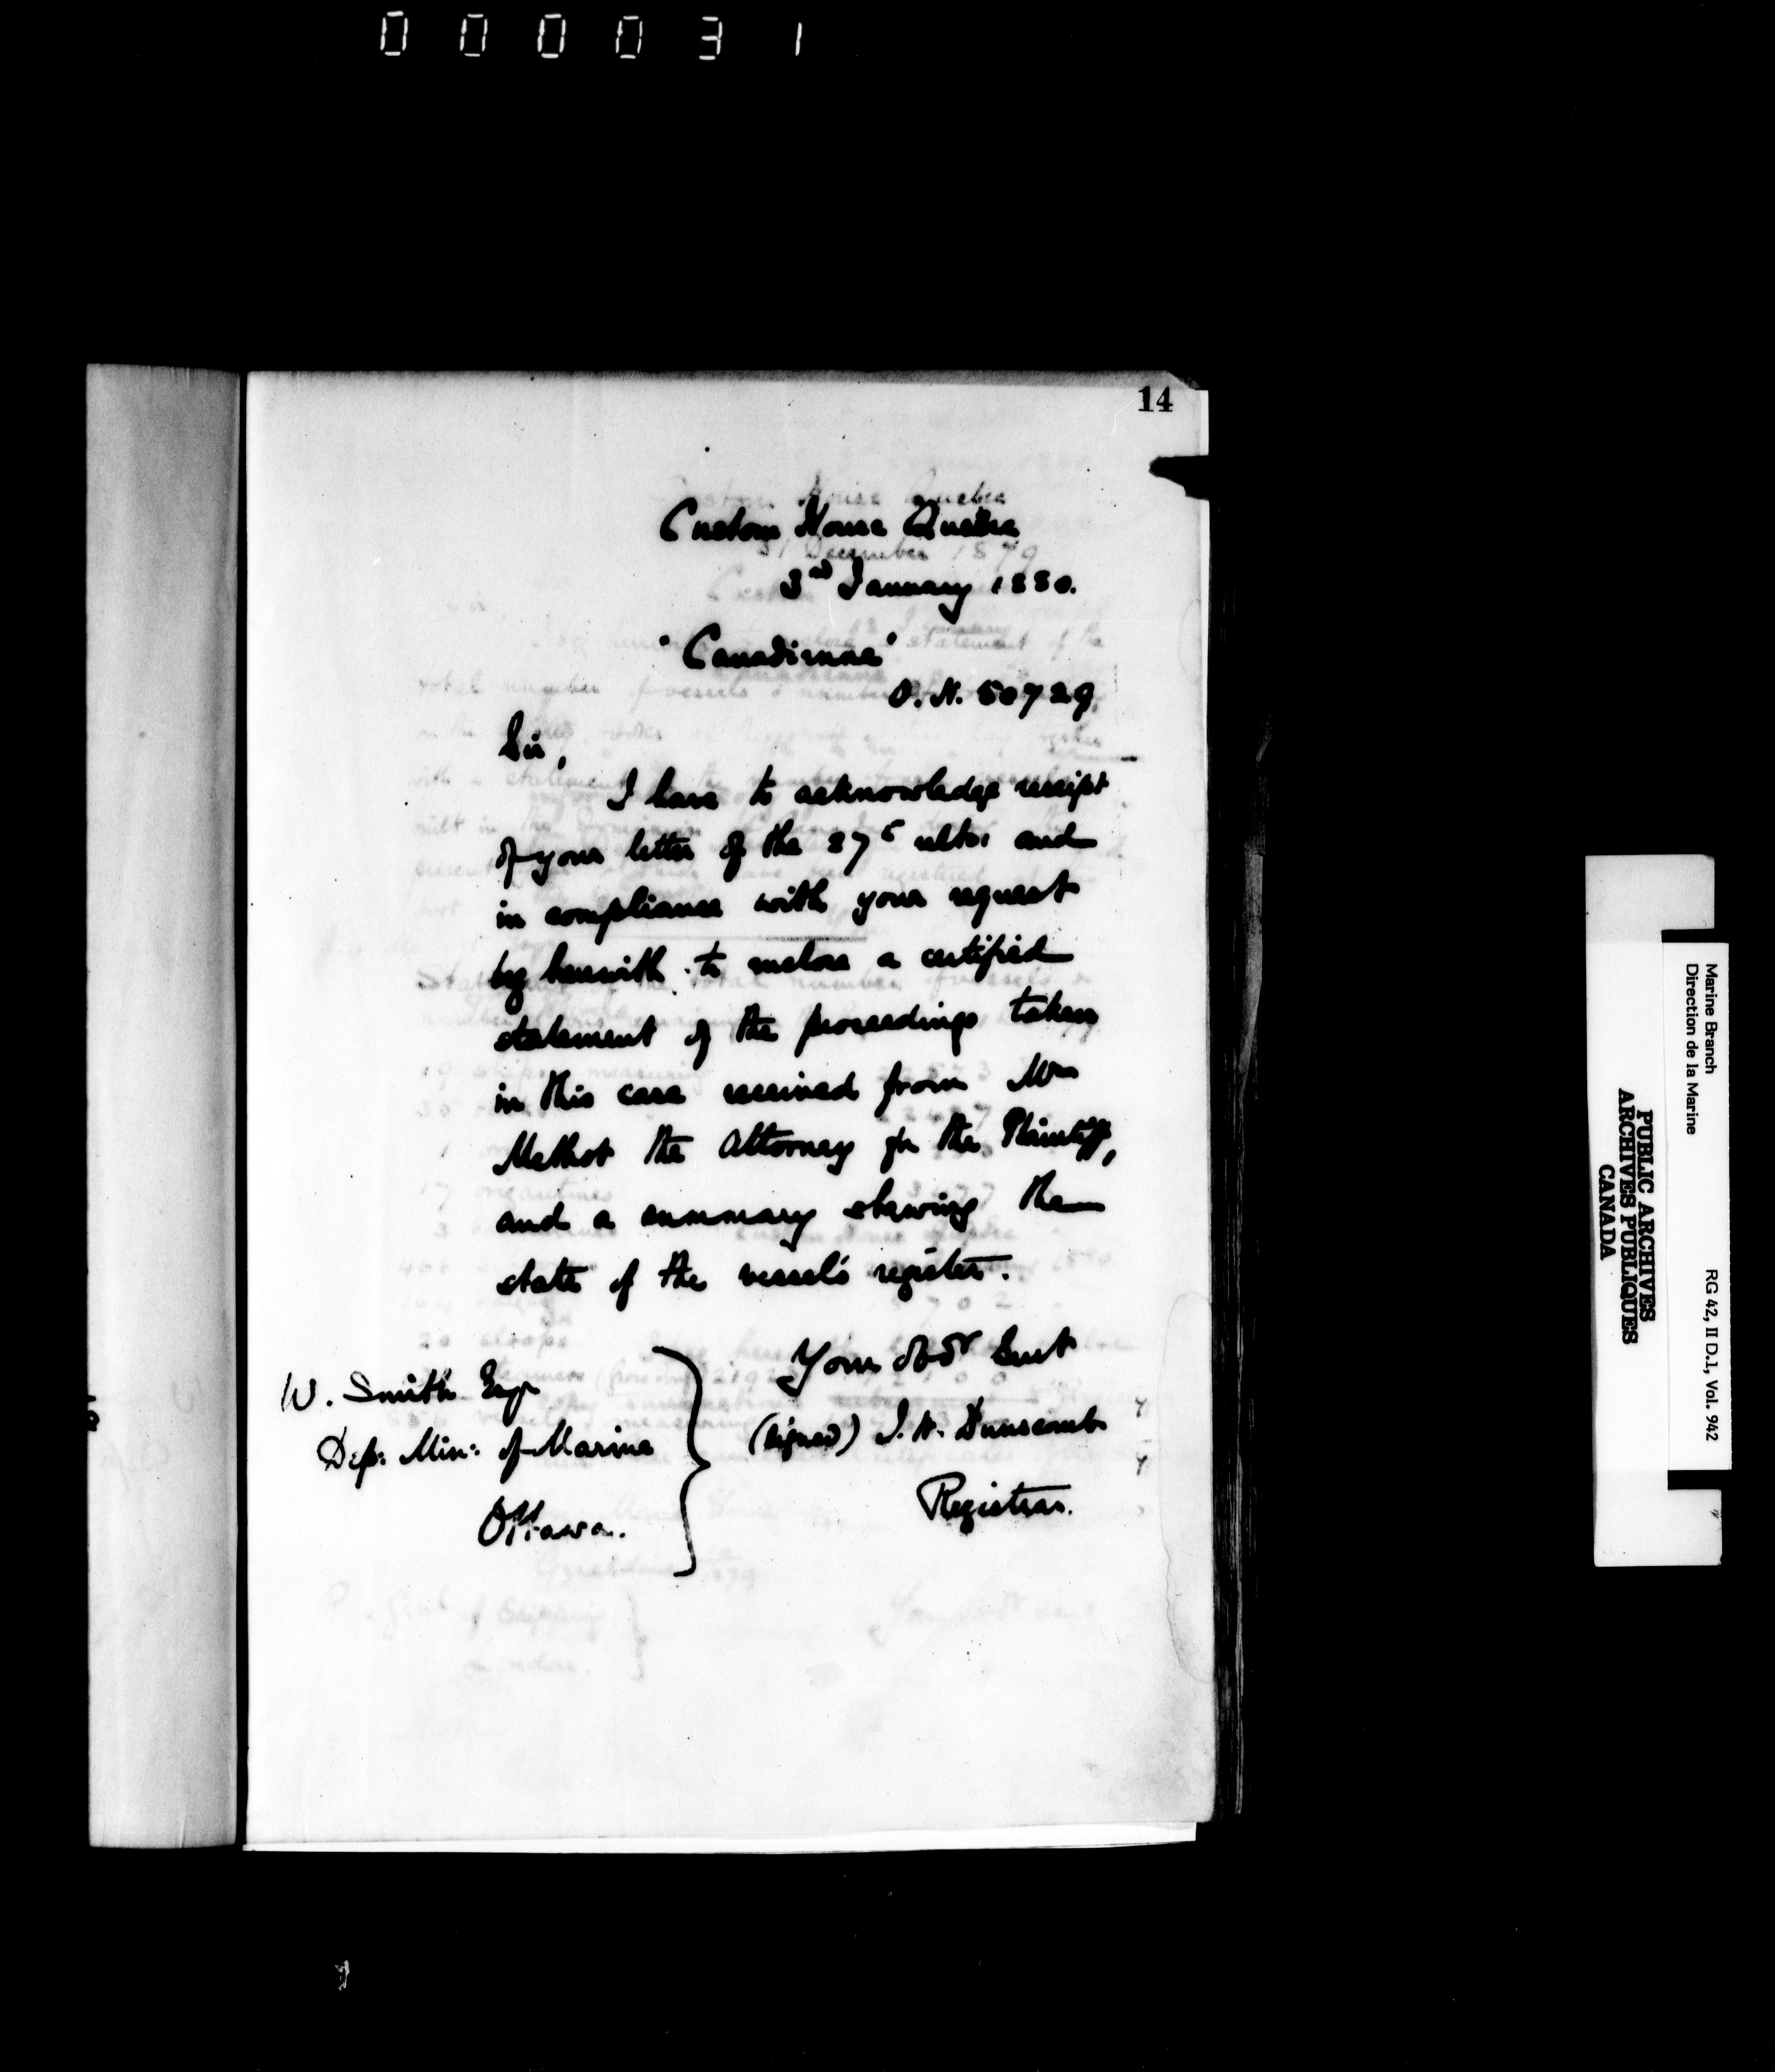 000031
14
Custom House Quebec
3rd January 1880.
"Canadienne"
O. N. 50729.
Sir,
I have to acknowledge receipt
of your letter of the 27th ulto: and
in compliance with your request
beg herewith to enclose a certified
statement of the proceedings taken
in this case received from Mr
Methot the Attorney for the Plaintiff,
and a summary shewing the
state of the vessel's register.
Your Obdt Servt
(signed) J. W. Dunscomb
Registrar.
W. Smith Esqr
Dep: Min: of Marine
Ottawa.
Marine Branch
Direction de la Marine
RG 42, II D.1, Vol. 942
PUBLIC ARCHIVES
ARCHIVES PUBLIQUES
CANADA